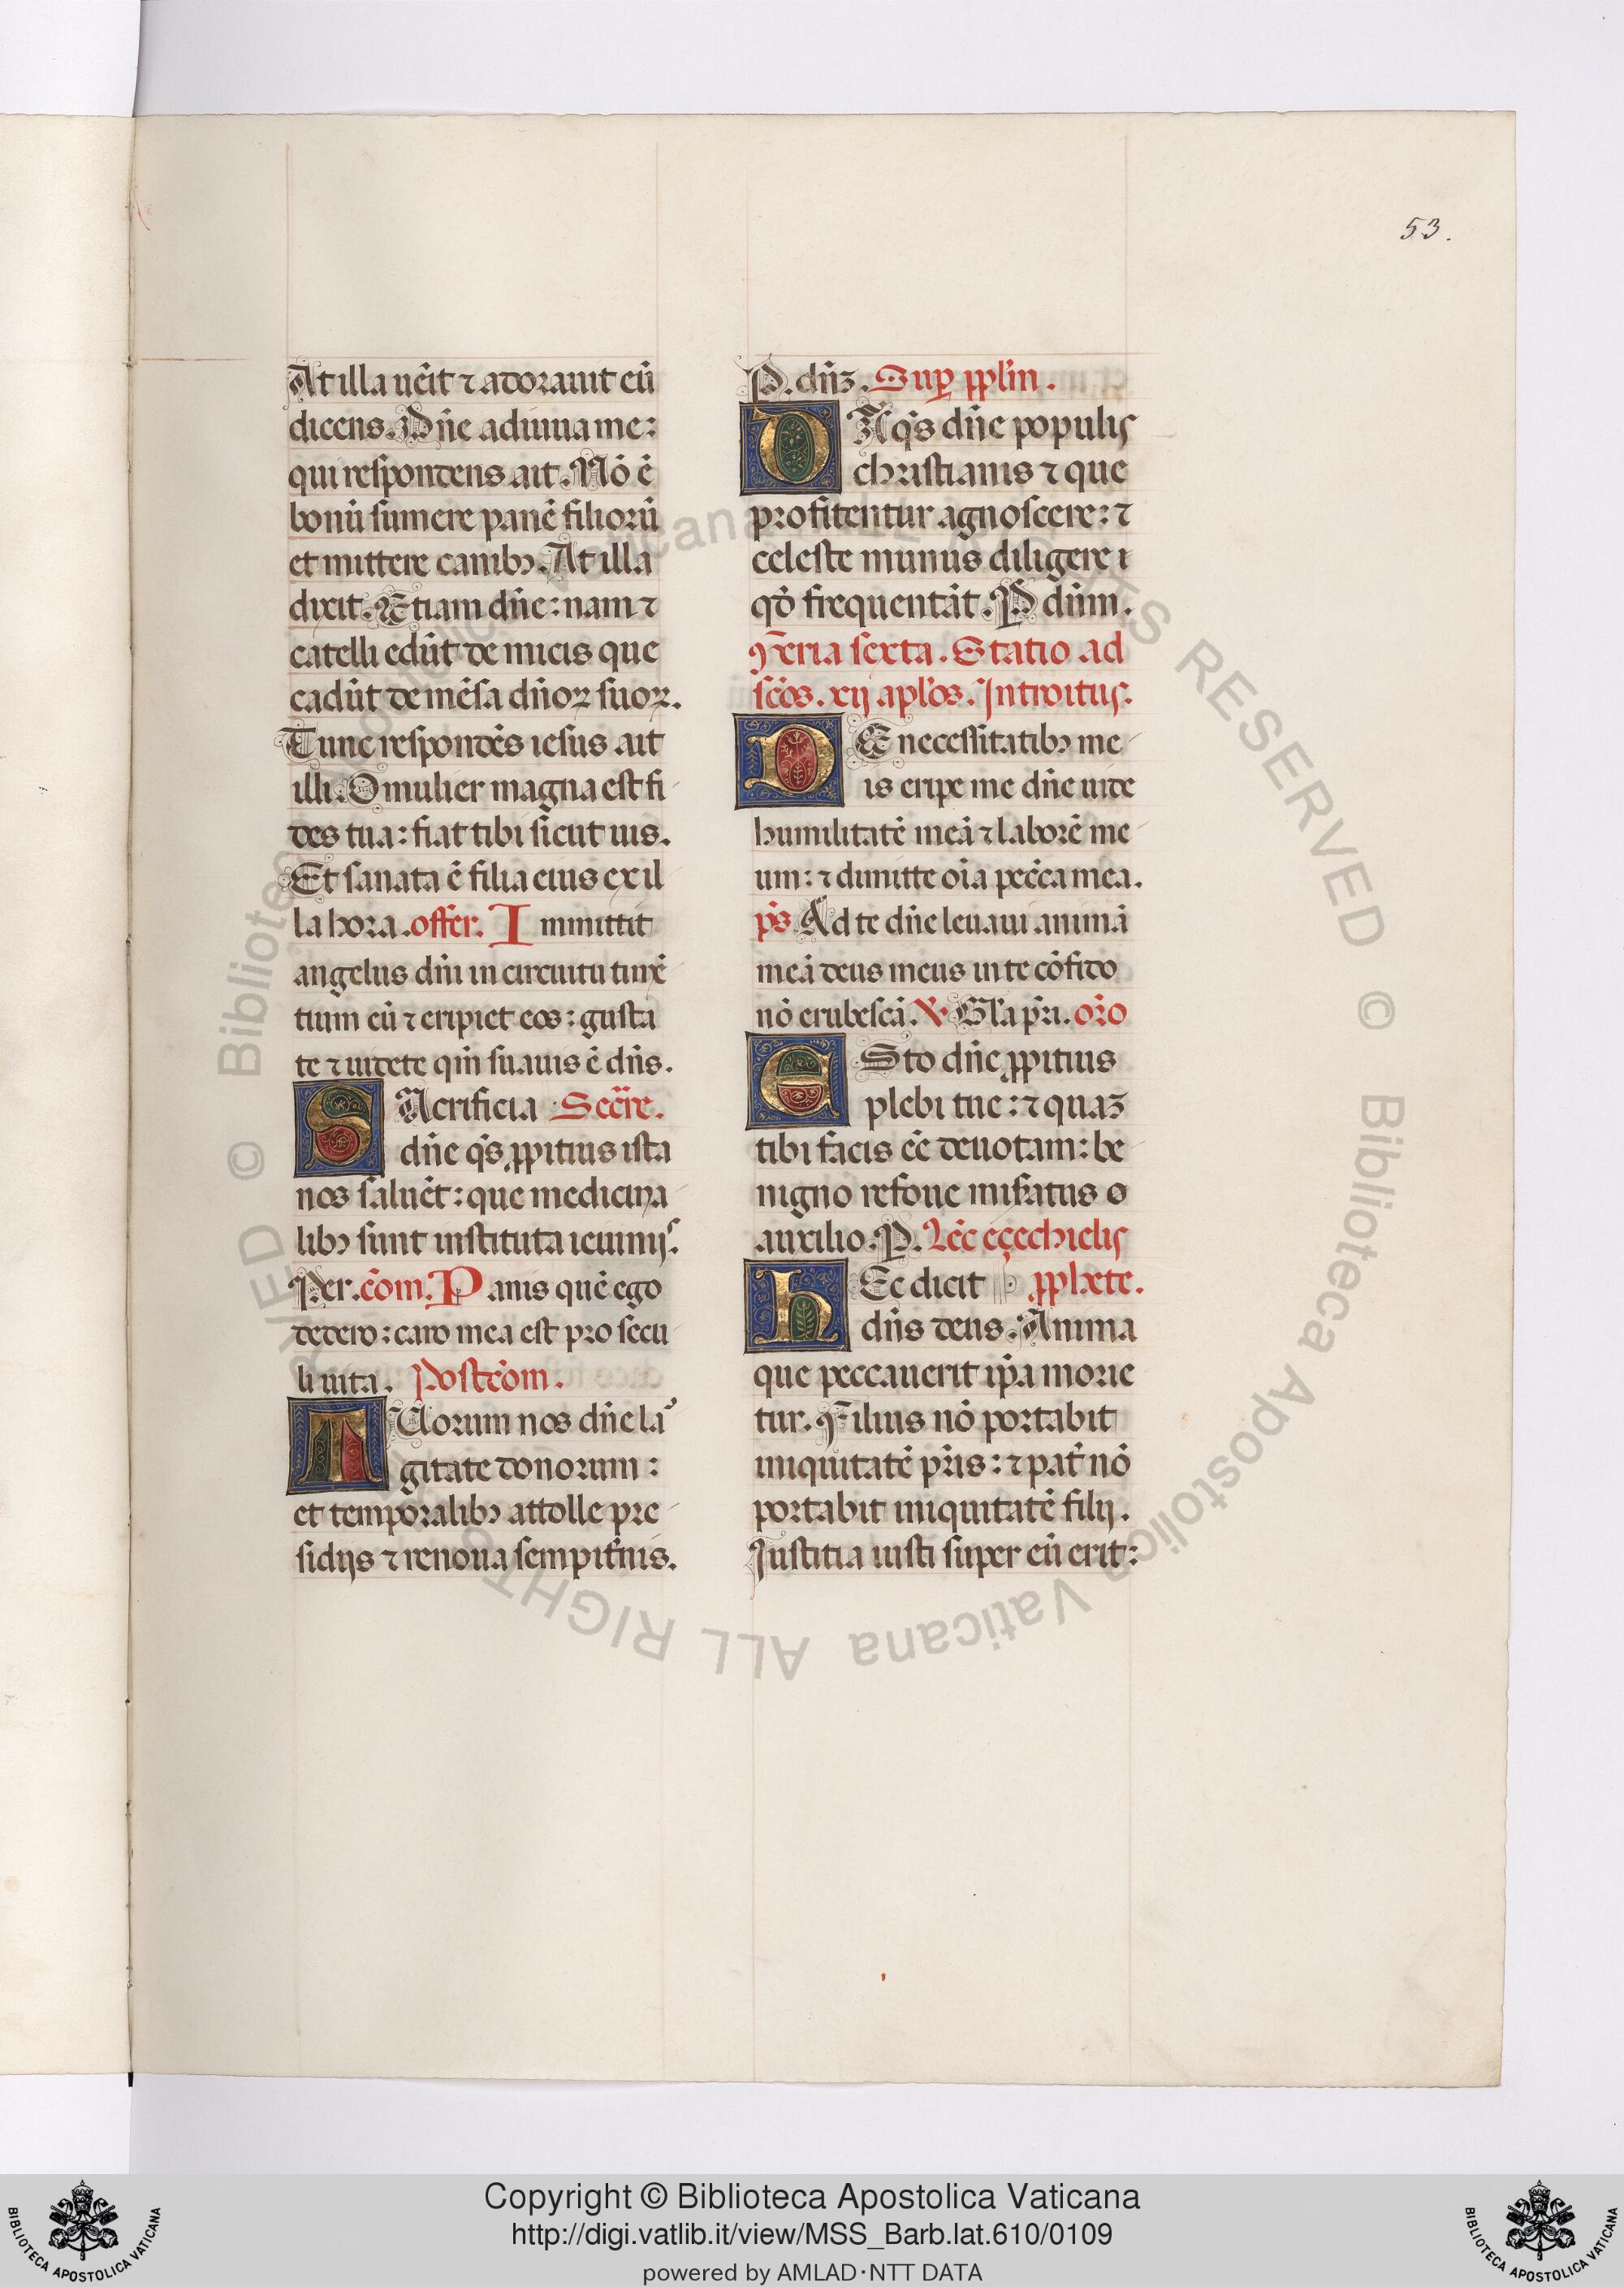 53.
At illa uēit ⁊ adorauit eū
dicens. Dn̄e adiuua me:
qui respondens ait. Nō ē
bonū sumere panē filiorū
et mittere canibꝫ. At illa
dixit. Etiam dn̄e: nam ⁊
catelli edūt de micis que
cadūt de mēsa dn̄oꝝ suoꝝ.
Tunc respondēs iesus ait
illi. O mulier magna est fi
des tua: fiat tibi sicut uis.
Et sanata ē filia eius ex il
la hora. offer. Immittit
angelus dn̄i in circuitu timē
tium eū ⁊ eripiet eos: gusta
te ⁊ uidete qm̄ suauis ē dn̄s.
SAcrificia Secr̄e.
dn̄e qs̄ ꝓpitius ista
nos saluēt: que medicina
libꝫ sunt instituta ieiunijs.
Per. cōm. Panis quē ego
dedero: caro mea est pro secu
li uita. Postcōm.
TUorum nos dn̄e lar
gitate donorum:
et temporalibꝫ attolle pre
sidijs ⁊ renoua sempit̄nis.
P. dn̄ꝫ. Suꝑ ppl̄m.
DA qs̄ dn̄e populis
christianis ⁊ que
profitentur agnoscere: ⁊
celeste munus diligere
qď frequentāt. P dn̄m.
Feria sexta. Statio ad
sc̄os. xij apl̄os. Introitus.
DE necessitatibꝫ me
is eripe me dn̄e uide
humilitatē meā ⁊ laborē me
um: ⁊ dimitte oīa pecc̄a mea.
ps̄ Ad te dn̄e leuaui animā
meā deus meus in te cōfido
nō erubescā. ℣ Gl̄a pr̄i. or̄o
ESto dn̄e ꝓpitius
plebi tue: ⁊ quaꝫ
tibi facis eē deuotam: be
nigno refoue mis̄atus
auxilio. P. Lēc eçechielis
HEc dicit ꝓphete.
dn̄s deus. Anima
que peccauerit ip̄a morie
tur. Filius nō portabit
iniquitatē pr̄is: ⁊ pat̄ nō
portabit iniquitatē filij.
Iustitia iusti super eū erit:
© Biblioteca Apostolica Vaticana ALL RIGHTS RESERVED © Biblioteca Apostolica Vaticana ALL RIGHTS RESERVED
Copyright © Biblioteca Apostolica Vaticana
http://digi.vatlib.it/view/MSS_Barb.lat.610/0109
powered by AMLAD·NTT DATA
BIBLIOTECA APOSTOLICA VATICANA
BIBLIOTECA APOSTOLICA VATICANA